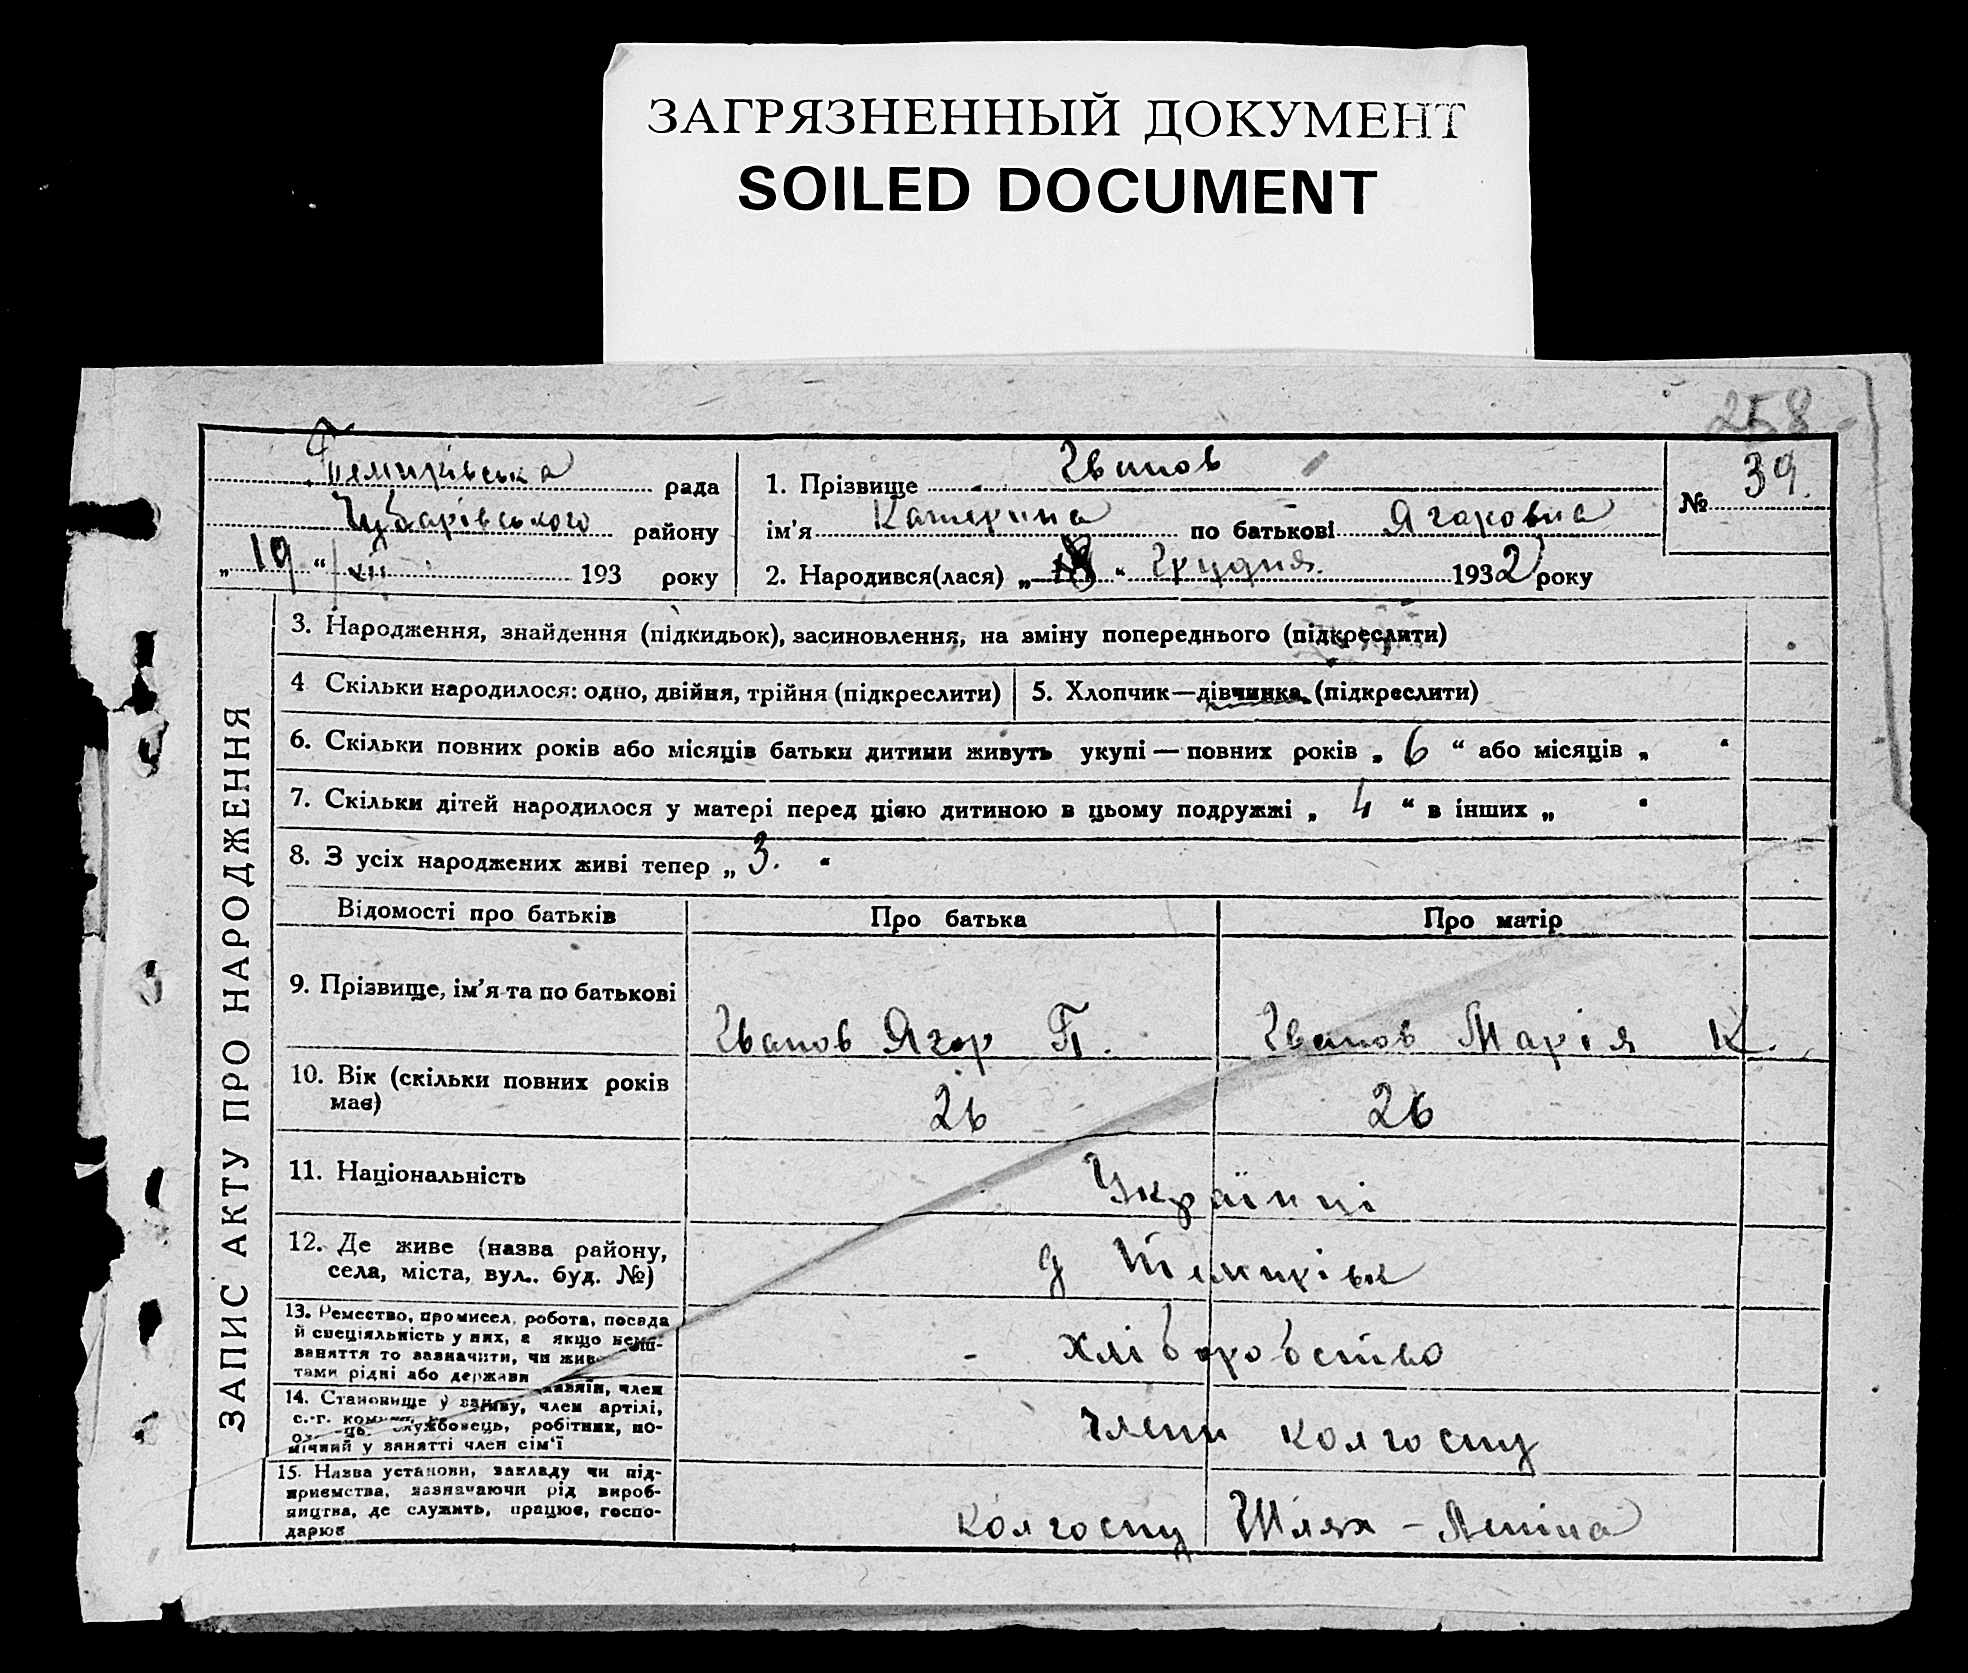 ЗАГРЯЗНЕННЫЙ ДОКУМЕНТ
SOILED DOCUMENT
258
Темирівська рада
Чубарівського району
„ 19 “ XII 193 року
1. Прізвище Іванов
ім'я Катерина по батькові Ягоровна
2. Народився(лася) „ “ Грудня 1932 року
№ 39.
ЗАПИС АКТУ ПРО НАРОДЖЕННЯ
3. Народження, знайдення (підкидьок), засиновлення, на зміну попереднього (підкреслити)
4 Скільки народилося: одно, двійня, трійня (підкреслити)
5. Хлопчик—дівчинка (підкреслити)
6. Скільки повних років або місяців батьки дитини живуть укупі — повних років „ 6 “ або місяців „ “
7. Скільки дітей народилося у матері перед цією дитиною в цьому подружжі „ 4 “ в інших „ “
8. З усіх народжених живі тепер „ 3. “
Відомості про батьків Про батька Про матір
9. Прізвище, ім'я та по батькові
Іванов Ягор П. Іванов Марія К.
10. Вік (скільки повних років
має)
26 26
11. Національність
Українці
12. Де живе (назва району,
села, міста, вул.. буд. №)
13. Ремество, промисел, робота, посада
й спеціяльність у них, а якщо нема
заняття то зазначити, чи живе
тами рідні або держави
хліборобство
14. Становище у заняву, член артілі,
службовець, робітник, по-
мічний у занятті член сім'ї
члени колгоспу
15. Назва установи, закладу чи під-
приємства, зазначаючи рід вироб-
ництва, де служить, працює, госпо-
дарює
колгоспу Шлях - Леніна